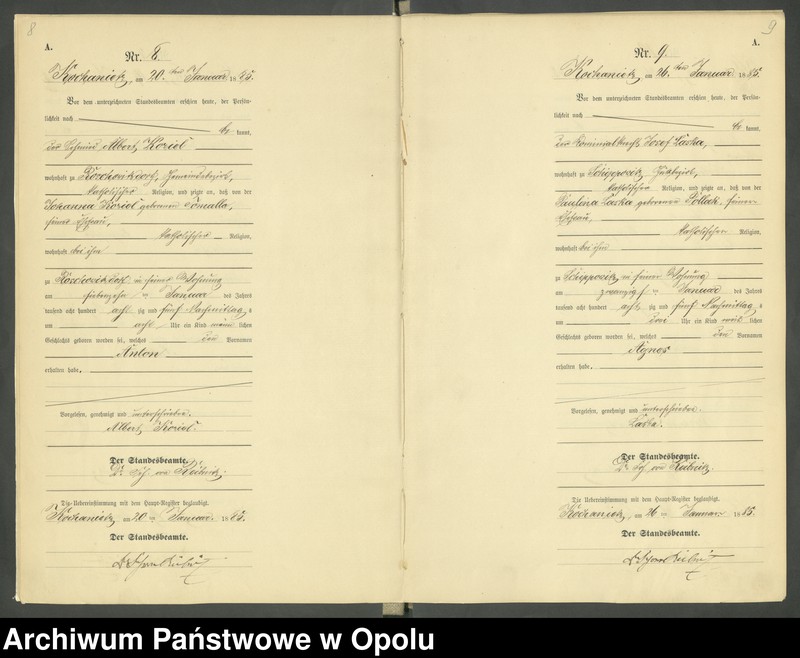 8
A.
Nr. 8.
Kochanietz, am 20. ten Januar 1885.
Vor dem unterzeichneten Standesbeamten erschien heute, der Persön-
lichkeit nach
be kannt,
der Albert Koziol
wohnhaft zu Gemeindebezirk,
katholischer Religion, und zeigte an, daß von der
Johanna Koziol geborenen Comalla,
seiner Ehefrau,
katholischer Religion,
wohnhaft bei ihm
zu in seiner Wohnung
am siebenzehn ten Januar des Jahres
tausend acht hundert acht zig und fünf Nachmittag s
um acht Uhr ein Kind männ lichen
Geschlechts geboren worden sei, welches den Vornamen
Anton
erhalten habe.
Vorgelesen, genehmigt und unterschrieben.
Albert Koziol.
Der Standesbeamte.
Die Uebereinstimmung mit dem Haupt-Register beglaubigt.
Kochanietz, am 20 ten Januar 1885.
Der Standesbeamte.
9
A.
Nr. 9.
Kochanietz am 26. ten Januar 1885.
Vor dem unterzeichneten Standesbeamten erschien heute, der Persön-
lichkeit nach
be kannt,
der Josef Laska,
wohnhaft zu Gutsbezirk,
katholischer Religion, und zeigte an, daß von der
Paulina Laska geborenen Pollak, seiner
Ehefrau,
katholischer Religion,
wohnhaft bei ihm
zu in seiner Wohnung
am zwanzig ten Januar des Jahres
tausend acht hundert acht zig und fünf Nachmittag s
um drei Uhr ein Kind weib lichen
Geschlechts geboren worden sei, welches den Vornamen
Agnes
erhalten habe.
Vorgelesen, genehmigt und unterschrieben.
Laska.
Der Standesbeamte.
Die Uebereinstimmung mit dem Haupt-Register beglaubigt.
Kochanietz, am 26 ten Januar 1885.
Der Standesbeamte.
Archiwum Państwowe w Opolu